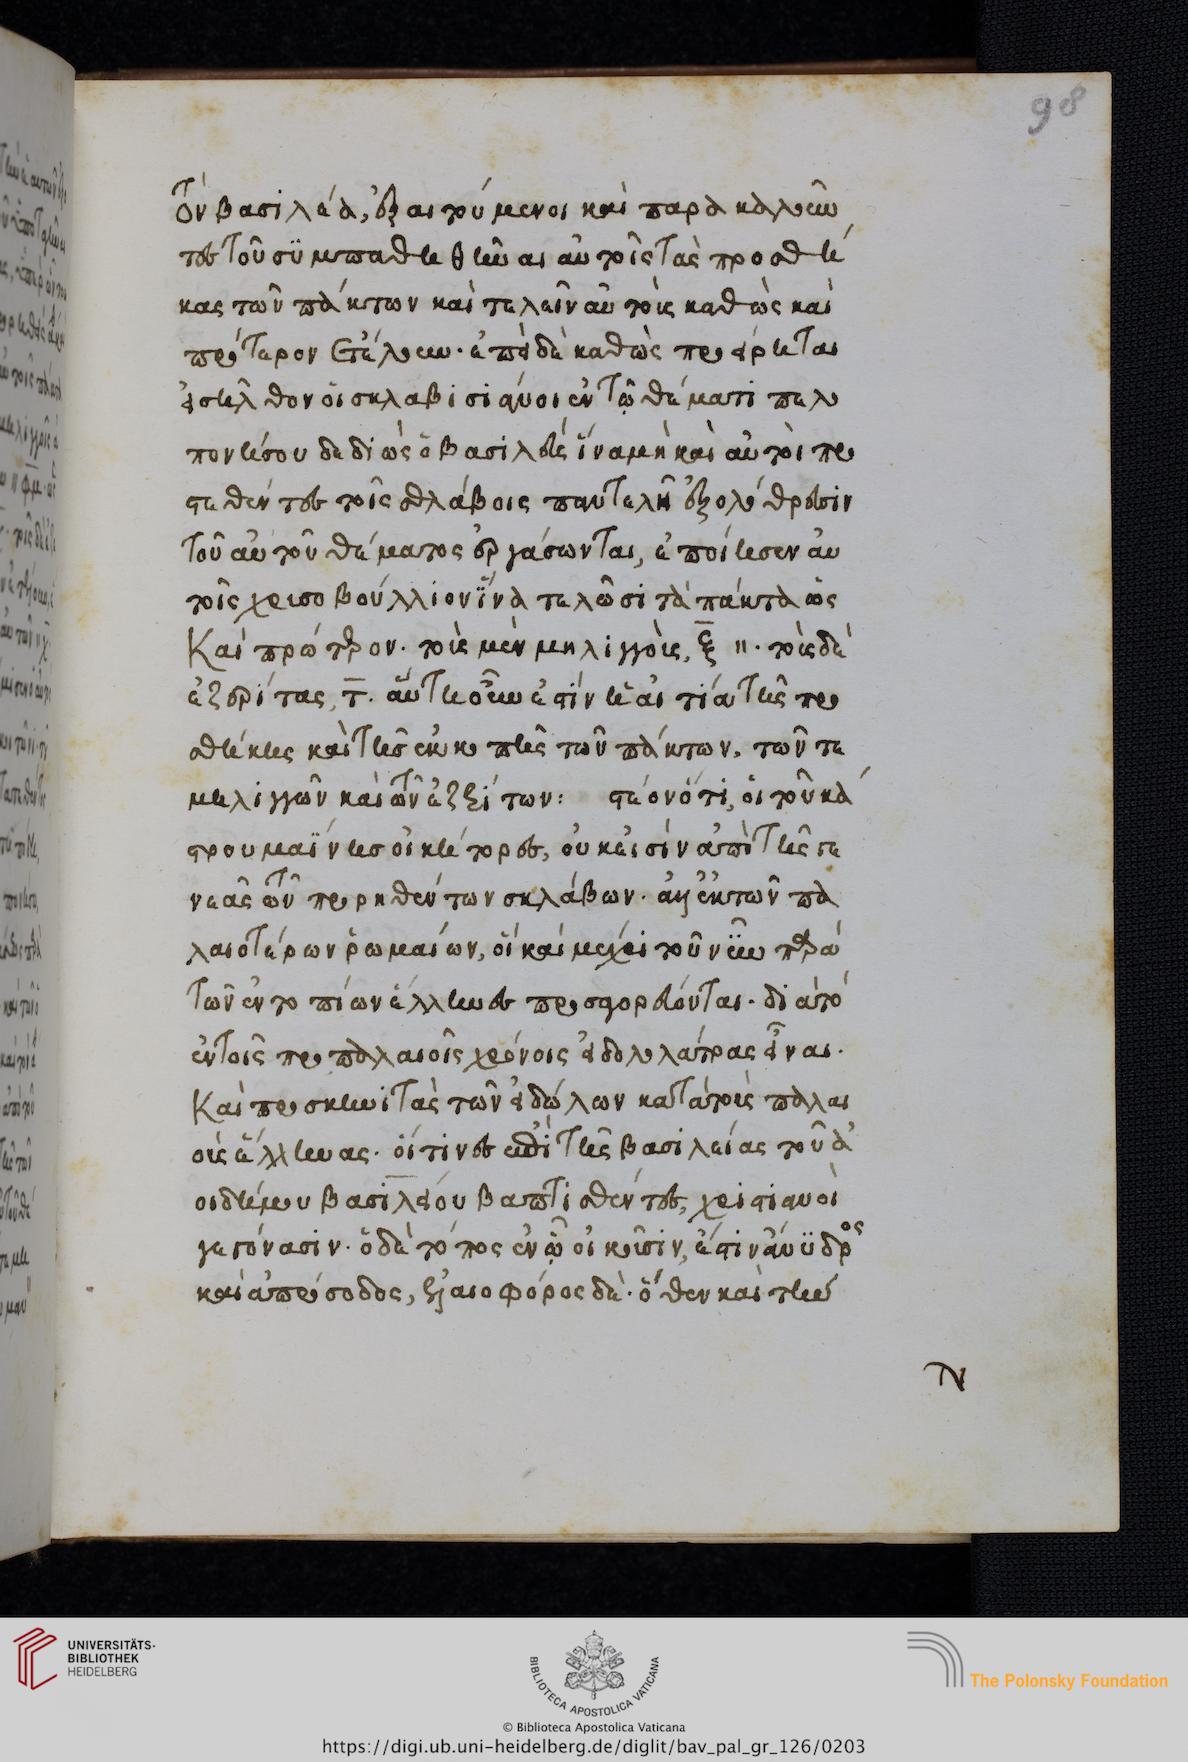 98
τὸν βασιλέα, ἐξαιτούμενοι καὶ παρακαλοῦν
τες τοῦ συμπαθηθῆναι αὐτοῖς τὰς προσθή
κας τῶν πάκτων καὶ τελεῖν αὐτοὺς καθὼς καὶ
πρότερον ἐτέλουν· ἐπεὶ δὲ καθὼς προείρηται
εἰσῆλθον οἱ σκλαβισιάνοι ἐν τῷ θέματι πελο
πονήσου δεδιὼς ὁ βασιλεὺς ἵνα μὴ καὶ αὐτοὶ προ
στεθέντες τοῖς σθλάβοις παντελῆ ἐξολόθρευσιν
τοῦ αὐτοῦ θέματος ἐργάσωνται, ἐποίησεν αὐ
τοῖς χρισοβούλλιον ἵνα τελῶσι τὰ πάκτα ὡς
καὶ πρώτερον· τοὺς μὲν μηλιγγοὺς, ξ̅ 〃· τοὺς δὲ
ἐζερίτας, τ̅. αὕτη οὖν ἐστὶν ἡ αἰτία τῆς προ
σθήκης καὶ τῆς ἐκκοπῆς τῶν πάκτων. τῶν τε
μηλιγγῶν καὶ τῶν ἐζεριτῶν: ϊστέον ὅτι, οἱ τοῦ κά
στρου μαΐνης οἰκήτορες, οὐκ εἰσὶν ἀπὸ τῆς γε
νεᾶς τῶν προρηθέντων σκλάβων· ἀλλ' ἐκ τῶν πα
λαιοτέρων ῥωμαίων, οἳ καὶ μέχρι τοῦ νῦν παρὰ
τῶν ἐντοπίων ἕλληνες προσαγορεύονται· διὰ τὸ
ἐν τοῖς προπαλαιοῖς χρόνοις εἰδωλολάτρας εἶναι·
καὶ προσκυνητὰς τῶν εἰδώλων κατὰ τοὺς παλαι
οὺς ἕλληνας· οἵτινες ἐπὶ τῆς βασιλείας τοῦ ἀ
οιδήμου βασιλείου βαπτισθέντες, χριστιανοὶ
γεγόνασιν· ὁ δὲ τόπος ἐν ᾧ οἰκοῦσιν, ἐστὶν ἄνυδρος
καὶ ἀπρόσοδος, ἐλαιοφόρος δὲ· ὅθεν καὶ τὴν
UNIVERSITÄTS-
BIBLIOTHEK
HEIDELBERG
BIBLIOTECA APOSTOLICA VATICANA
The Polonsky Foundation
© Biblioteca Apostolica Vaticana
https://digi.ub.uni-heidelberg.de/diglit/bav_pal_gr_126/0203